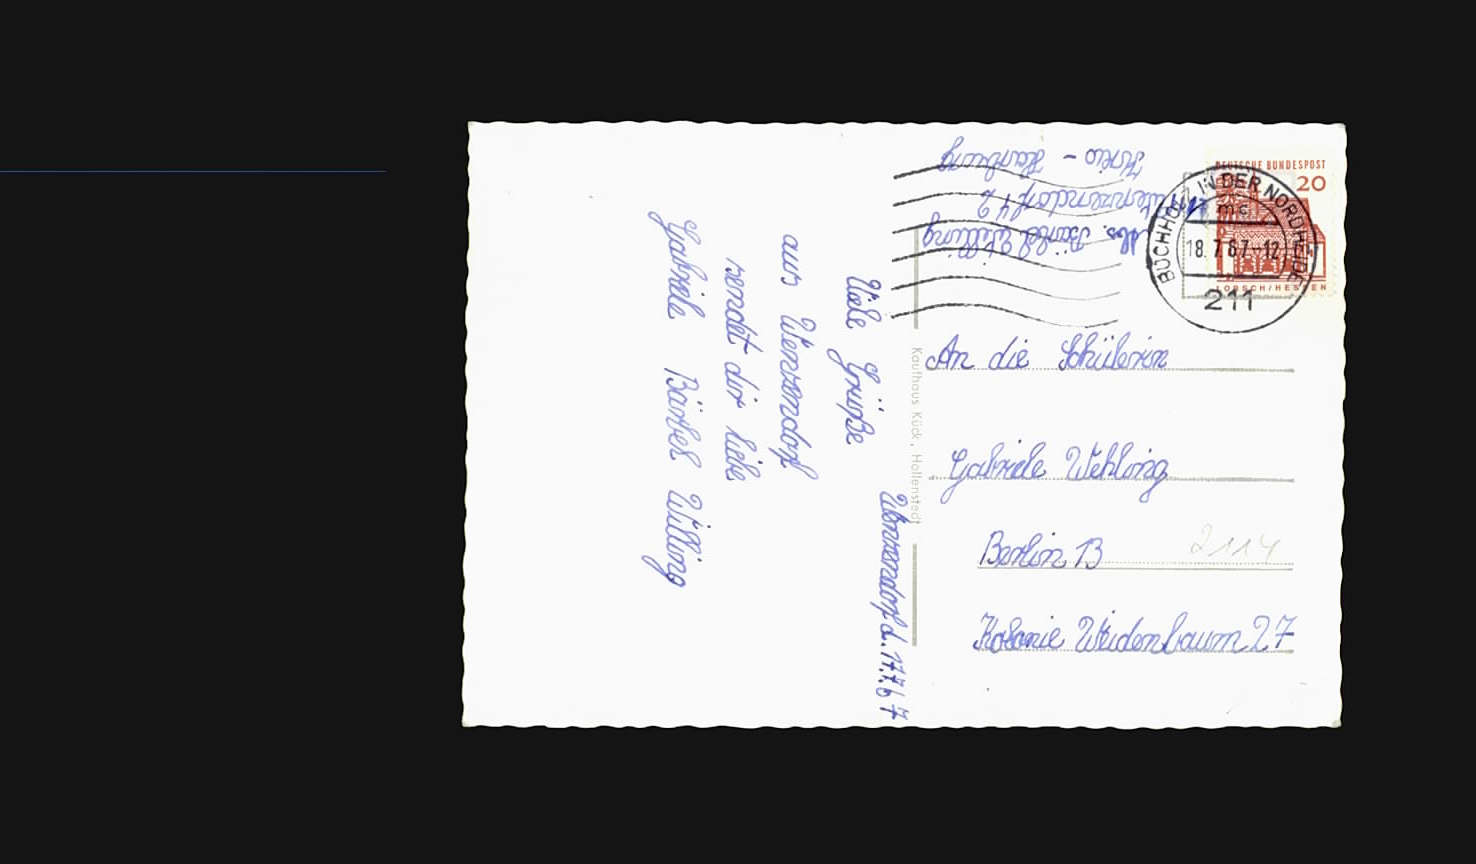 Wenzendorf d. 17.7.67
Viele Grüße
aus Wenzendorf
sendet dir liebe
Gabriele Bärbel Willing
Abs. Bärbel Willing
Wenzendorf 42
Kreis - Harburg
DEUTSCHE BUNDESPOST
20
LORSCH/HESSEN
BUCHHOLZ IN DER NORDHEIDE
mc
18.7.67-12
211
Kaufhaus Kück, Hollenstedt
An die Schülerin
Gabriele Wehling
Berlin 13
2114
Kolonie Weidenbaum 27